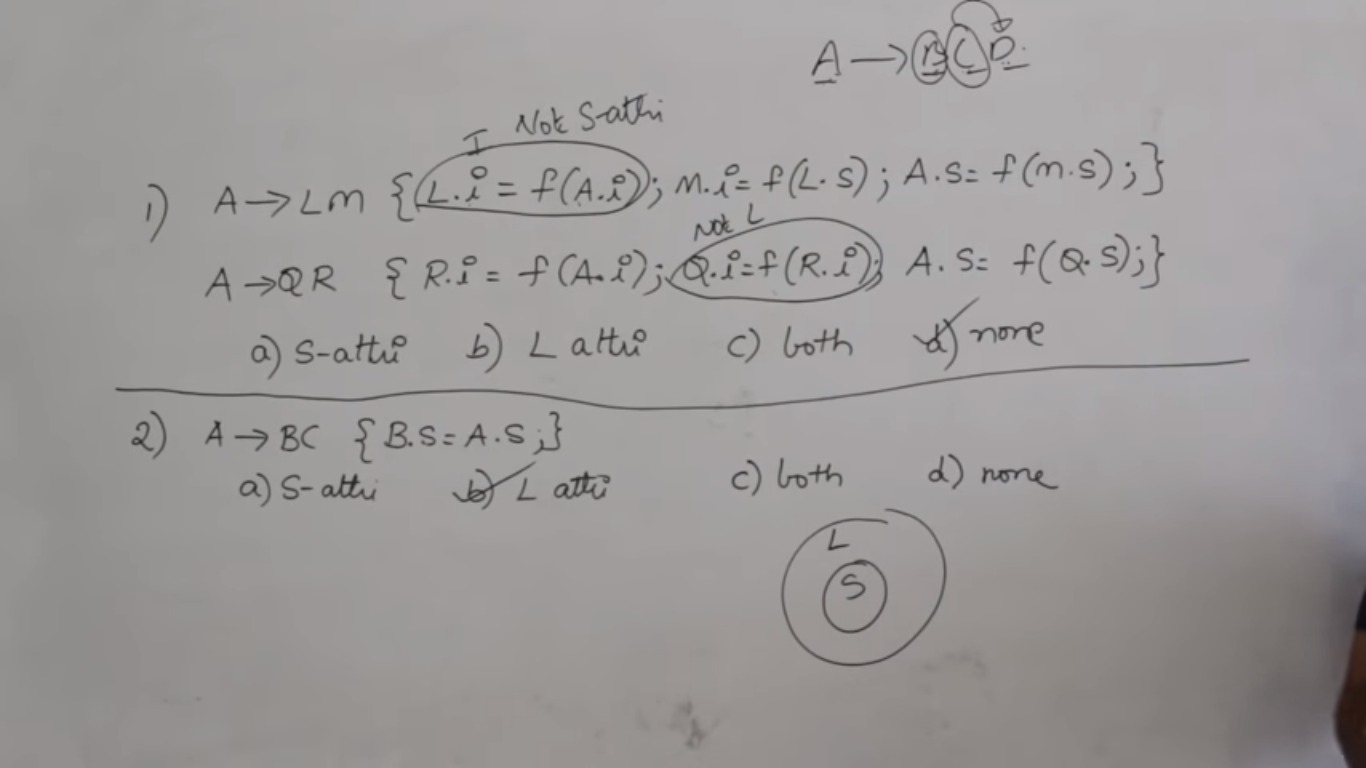 A → B C D.
I Not S-attri
1) A → LM { L.i = f(A.i); M.i = f(L.s); A.s = f(m.s); }
Not L
A → QR { R.i = f(A.i); Q.i = f(R.i); A.s = f(Q.s); }
a) S-attri b) L attri c) both d) none
2) A → BC { B.s = A.s; }
a) S-attri b) L attri c) both d) none
L
S